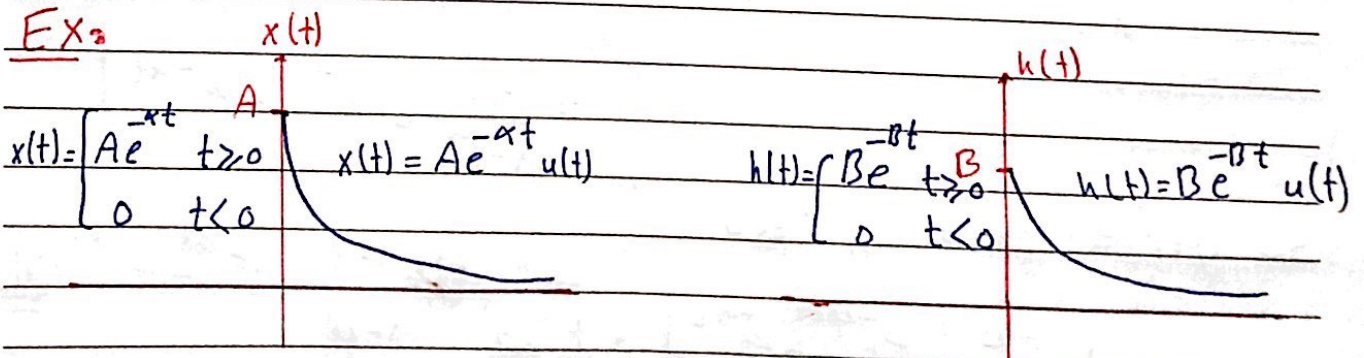 Ex:
x(t)
h(t)
A
x(t)= { Ae^{-αt} t≥0
0 t<0
x(t) = Ae^{-αt} u(t)
B
h(t)= { Be^{-βt} t≥0
0 t<0
h(t) = Be^{-βt} u(t)